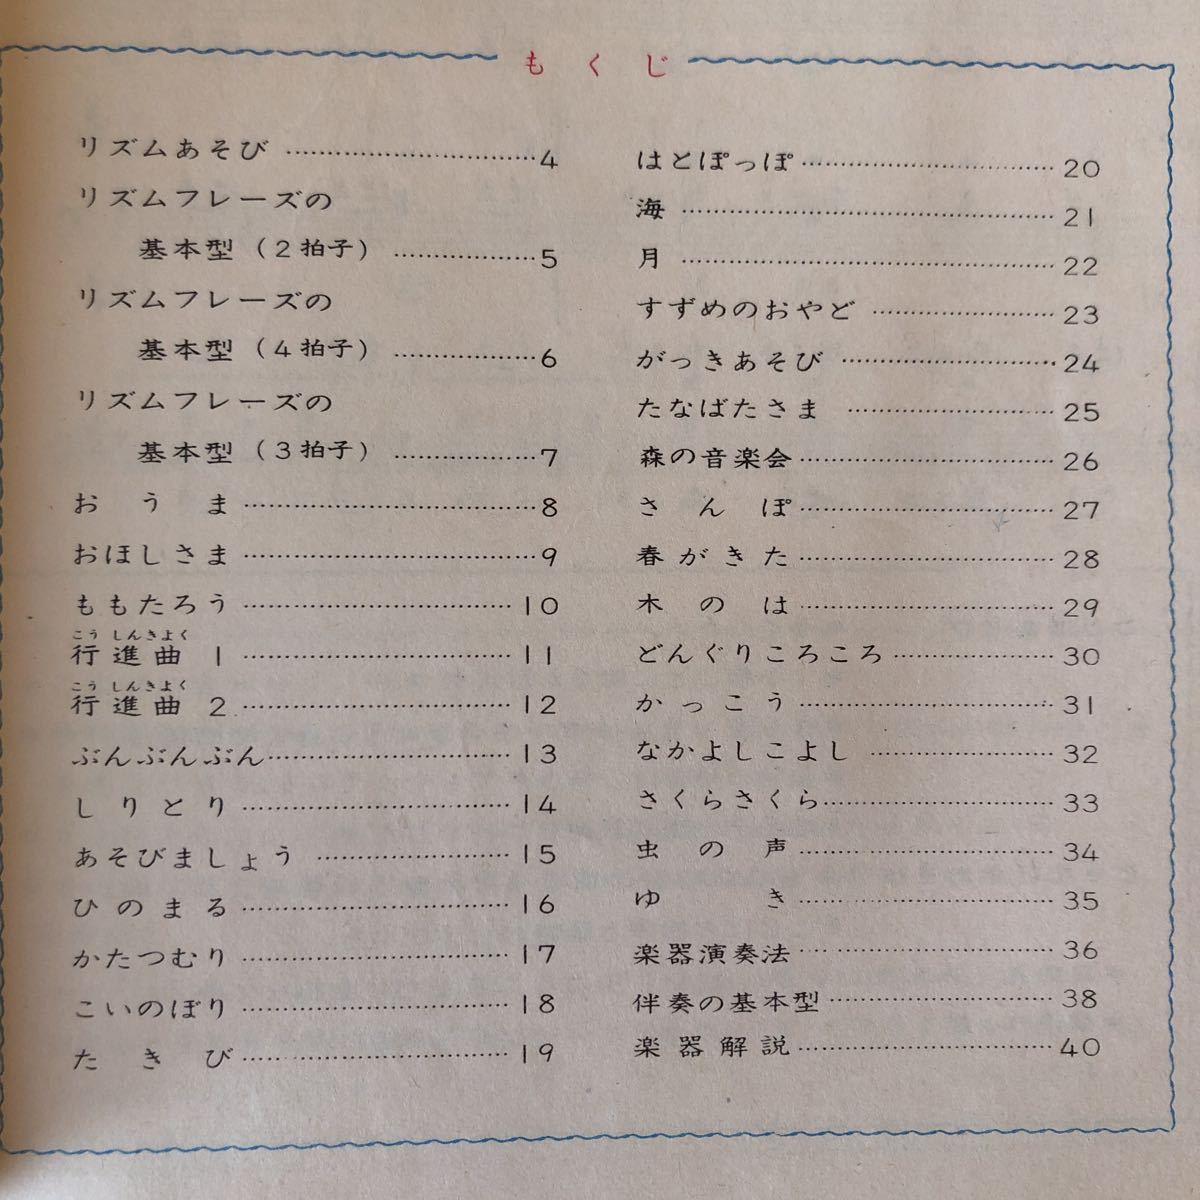 もくじ
リズムあそび……………………………4
リズムフレーズの
基本型(2拍子)………………5
リズムフレーズの
基本型(4拍子)………………6
リズムフレーズの
基本型(3拍子)………………7
おうま…………………………………8
おほしさま……………………………9
ももたろう……………………………10
こうしんきよく
行進曲 1……………………………11
こうしんきよく
行進曲 2……………………………12
ぶんぶんぶん…………………………13
しりとり………………………………14
あそびましょう………………………15
ひのまる………………………………16
かたつむり……………………………17
こいのぼり……………………………18
たきび…………………………………19
はとぽっぽ……………………………20
海………………………………………21
月………………………………………22
すずめのおやど………………………23
がっきあそび…………………………24
たなばたさま…………………………25
森の音楽会……………………………26
さんぽ…………………………………27
春がきた………………………………28
木のは…………………………………29
どんぐりころころ……………………30
かっこう………………………………31
なかよしこよし………………………32
さくらさくら…………………………33
虫の声…………………………………34
ゆき……………………………………35
楽器演奏法……………………………36
伴奏の基本型…………………………38
楽器解説………………………………40